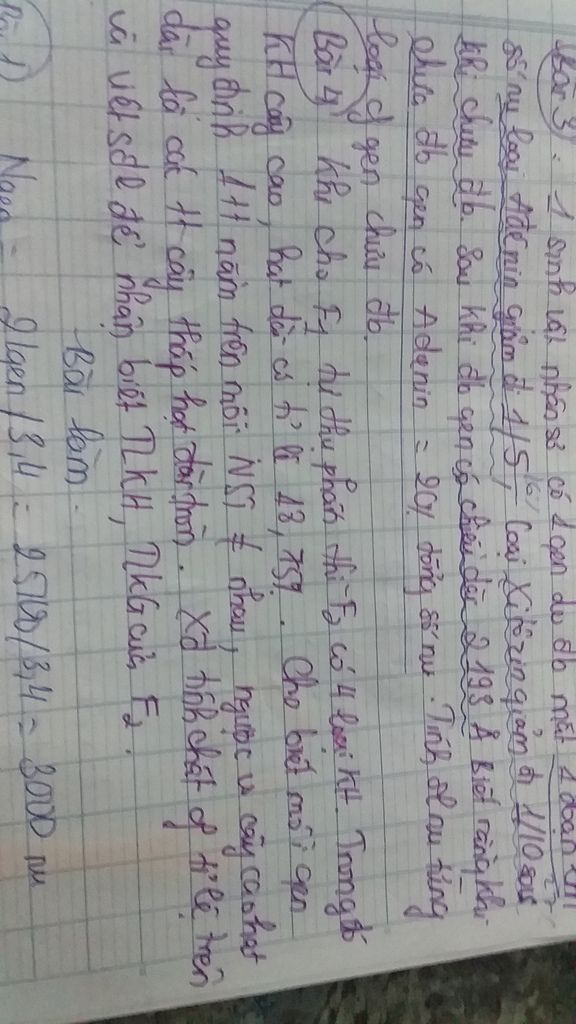 Bài 3: 1 sinh vật nhân sơ có 1 gen do đb mất 1 đoạn
số nu loại Ađênin giảm đi 1/5, loại Xitôzin giảm đi 1/10 so vs
khi chưa đb. Sau khi đb gen có chiều dài 2193 Å biết rằng khi
chưa đb gen có Adenin = 20% tổng số nu. Tính sl nu từng
loại of gen chưa đb.
Bài 4: Khi cho F1 tự thụ phấn thì F2 có 4 loại KH. Trong đó
KH cây cao, hạt dài có tỉ lệ 18,75%. Cho biết mỗi gen
quy định 1 tt nằm trên mỗi NST ≠ nhau, ngược vs cây cao hạt
dài là các tt cây thấp hạt tròn. Xđ tính chất of tỉ lệ trên
và viết sđl để nhận biết TLKH, TLKG của F2.
Bài làm.
Bài 1)
Ngen = 2lgen/3,4 = 2.5100/3,4 = 3000 nu